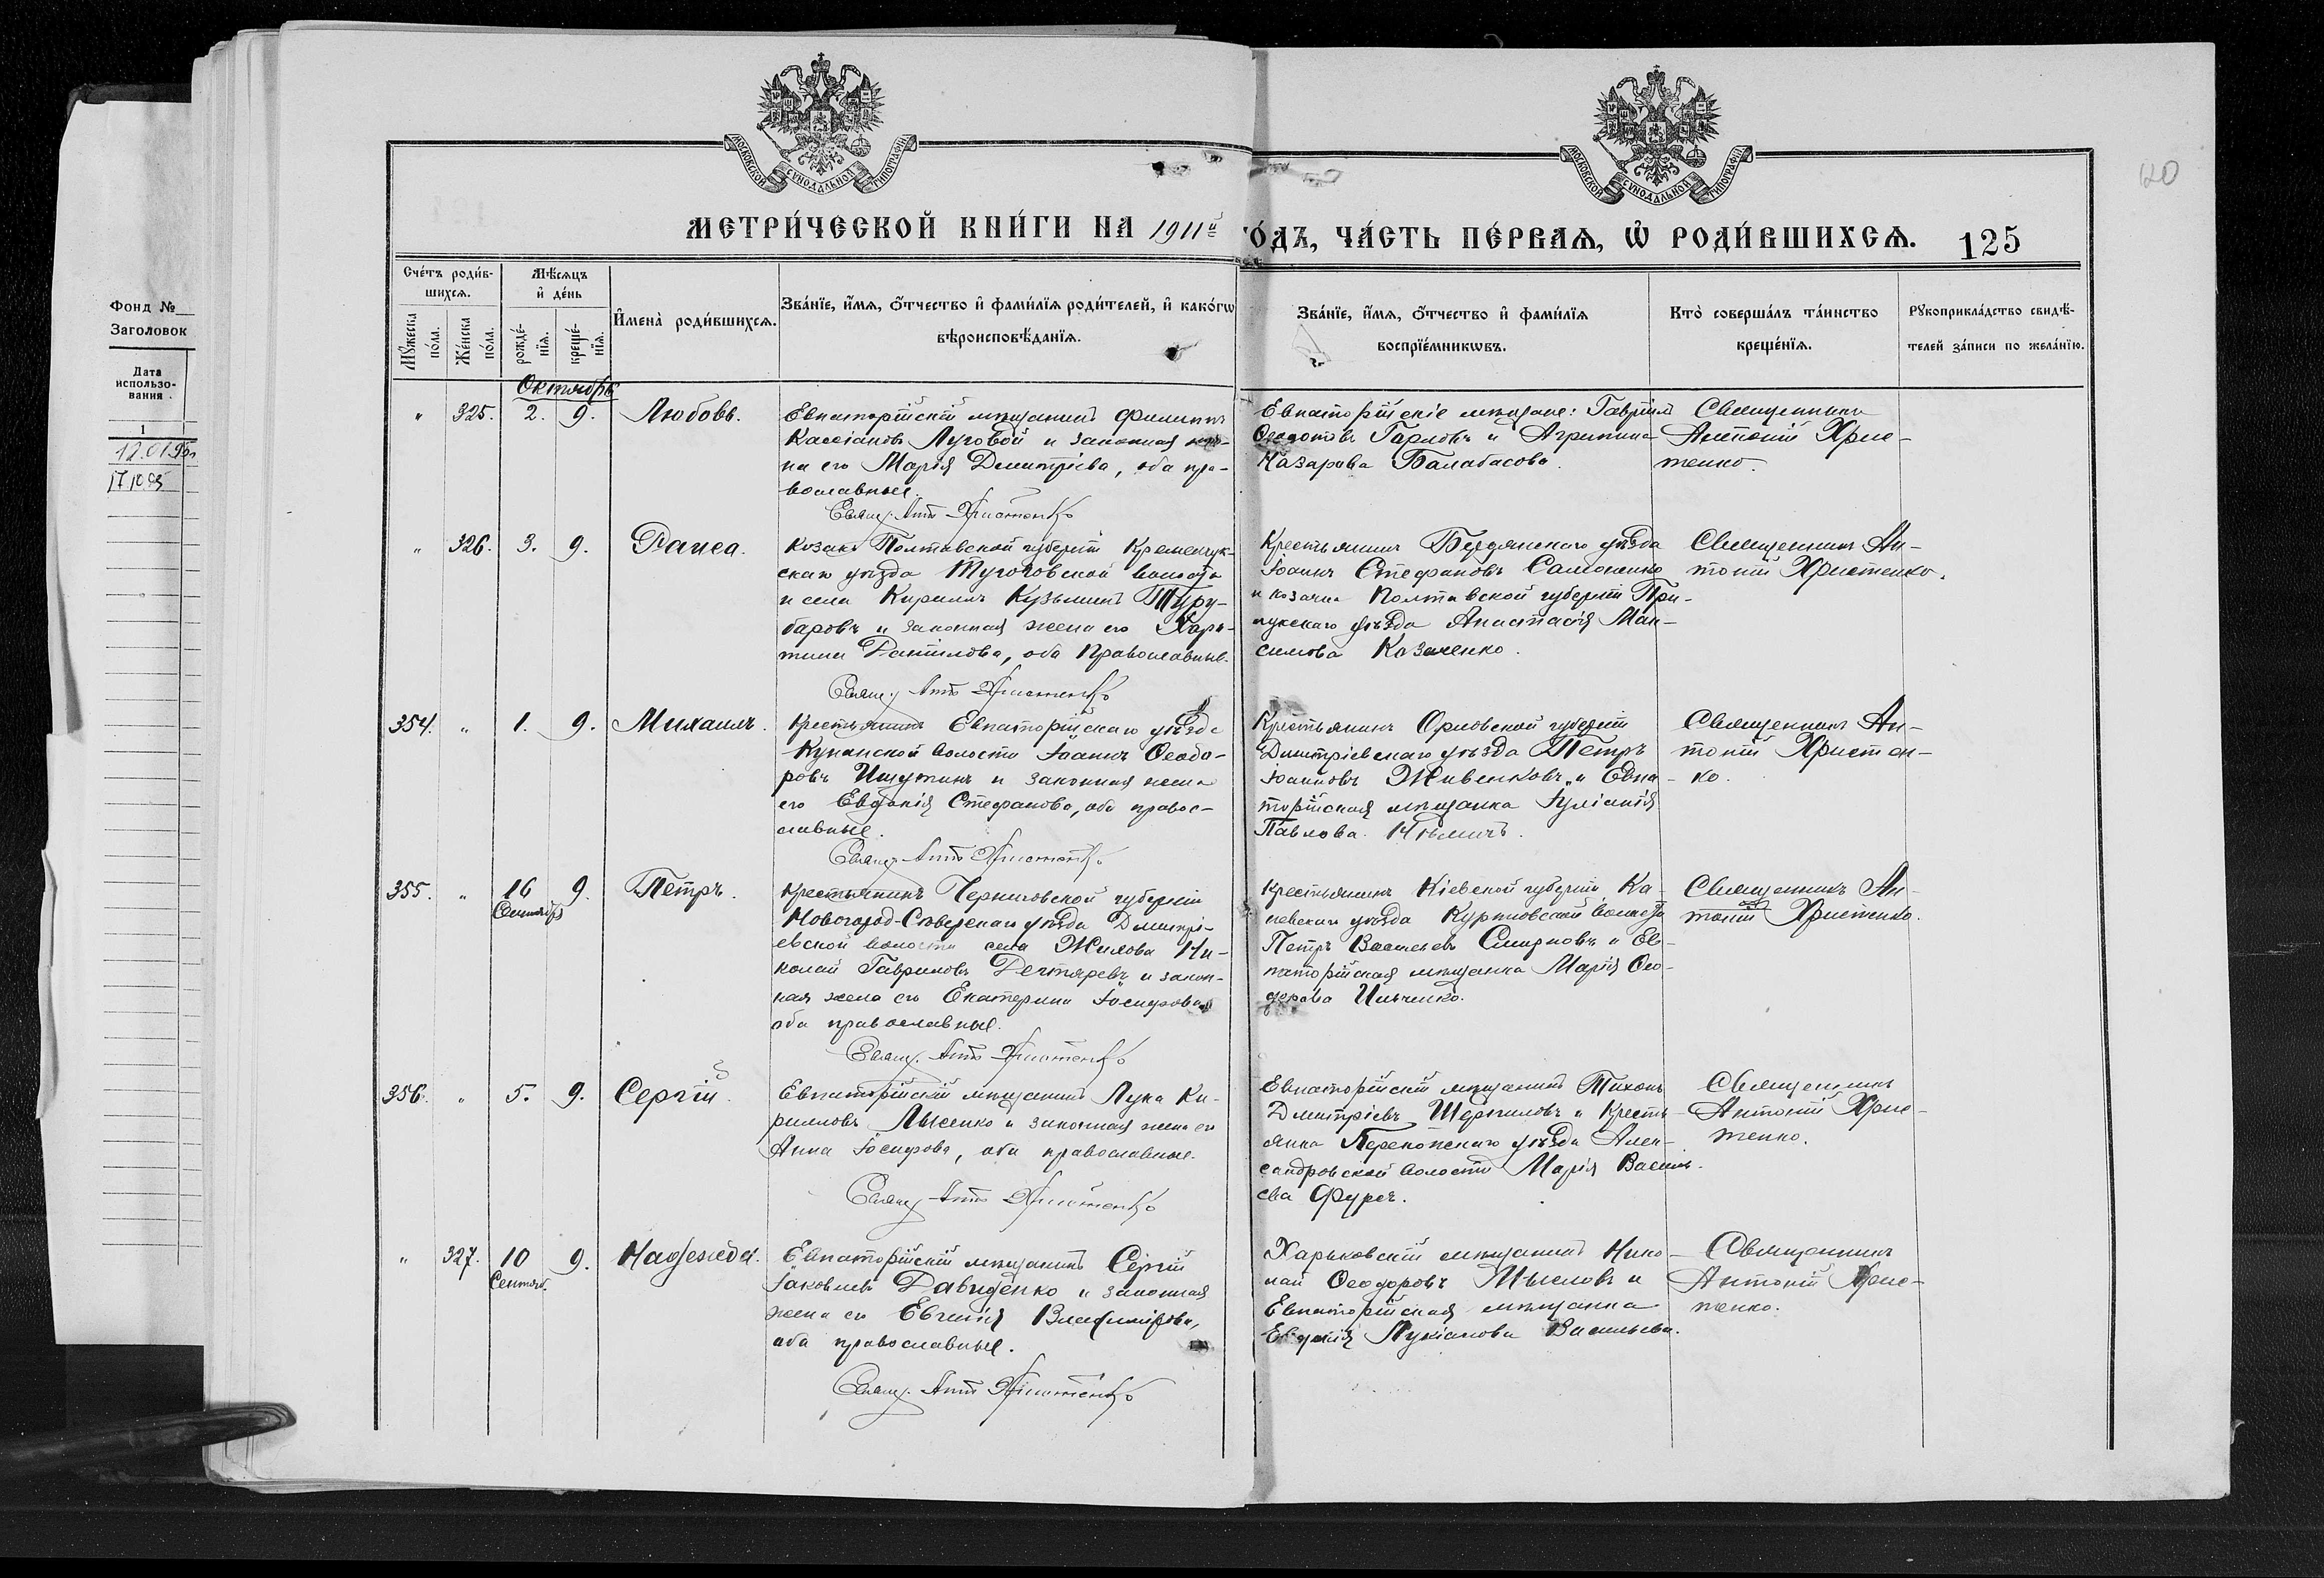 МОСКОВСКОЙ СѴНОДАЛЬНОЙ ТИПОГРАФІИ
МОСКОВСКОЙ СѴНОДАЛЬНОЙ ТИПОГРАФІИ
120
МЕТРИ́ЧЕСКОЙ КНИ́ГИ НА 1911й
ГО́ДЪ, ЧА́СТЬ ПЕ́РВАѦ, Ѡ҆ РОДИ́ВШИХСѦ. 125
Фонд №
Заголовок
Дата
использо-
вания
1
12.01.95г
17 10 95
Сче́тъ роди́в-
шихсѧ.
Мꙋ́жеска
по́ла.
Же́нска
по́ла.
Мѣ́сѧцъ
и҆ де́нь
рожде́-
нїѧ.
креще́-
нїѧ.
И҆мена̀ роди́вшихсѧ.
Зва́нїе, и҆́мѧ, ѻ҆́тчество и҆ фами́лїѧ роди́телей, и҆ како́гѡ
вѣроисповѣ́данїѧ.
Зва́нїе, и҆́мѧ, ѻ҆́тчество и҆ фами́лїѧ
воспрїе́мникѡвъ.
Кто̀ соверша́лъ та́инство
креще́нїѧ.
Рꙋкоприкла́дство свидѣ́-
телей за́писи по жела́нїю.
Октябрь
" 325. 2. 9. Любовь.
Евпаторійскій мѣщанинъ Филиппъ
Кассіановъ Луговой и законная же-
на его Марія Димитріева, оба пра-
вославные.
Свящ. Ант. Христенко
Евпаторійскіе мѣщане: Гавріилъ
Ѳедотовъ Гарловъ и Агрипина
Назарова Балабасова.
Священникъ
Антоній Хрис-
тенко.
" 326. 3. 9. Раиса.
Козакъ Полтавской губерніи Кременчук-
скаго уѣзда волости
и села Кириллъ Кузьминъ Туру-
баровъ и законная жена его Хари-
тина Данилова, оба православные.
Свящ. Ант. Христенко
Крестьянинъ Бердянскаго уѣзда
Іоаннъ Стефановъ Самоненко
и козачка Полтавской губерніи При-
лукскаго уѣзда Анастасія Мак-
симова Казаченко.
Священникъ Ан-
тоній Христенко.
354. " 1. 9. Михаилъ.
Крестьянинъ Евпаторійскаго уѣзда
Кунанской волости Іоаннъ Ѳеодо-
ровъ Ишутинъ и законная жена
его Евдокія Стефанова, оба правос-
лавные.
Свящ. Ант. Христенко
Крестьянинъ Орловской губерніи
Димитріевскаго уѣзда Петръ
Іоанновъ Живенковъ и Евпа-
торійская мѣщанка Іуліанія
Павлова Нѣмичъ.
Священникъ Ан-
тоній Христен-
ко.
355. " 16 9. Петръ.
Сентября
Крестьянинъ Черниговской губерніи
Новогород-Сѣверскаго уѣзда Димитрі-
евской волости села Жихова Ни-
колай Гавриловъ Дегтяревъ и закон-
ная жена его Екатерина Іосифова,
оба православные.
Свящ. Ант. Христенко
Крестьянинъ Кіевской губерніи Ка-
невскаго уѣзда Куриловской волости
Петръ Васильевъ Смирновъ и Ев-
паторійская мѣщанка Марія Ѳео-
дорова Ильченко.
Священникъ Ан-
тоній Христенко.
356. " 5. 9. Сергій.
Евпаторійскій мѣщанинъ Лука Ки-
рилловъ Лысенко и законная жена его
Анна Іосифова, оба православные.
Свящ. Ант. Христенко
Евпаторійскій мѣщанинъ Тихонъ
Димитріевъ Шерпиловъ и Кресть-
янка Перекопскаго уѣзда Алек-
сандровской волости Марія Василь-
ева Фурсъ.
Священникъ
Антоній Хрис-
тенко.
" 327. 10 9. Надежда.
Сентяб.
Евпаторійскій мѣщанинъ Сергій
Іаковлевъ Давиденко и законная
жена его Евгенія Владимірова,
оба православные.
Свящ. Ант. Христенко
Харьковскій мѣщанинъ Нико-
лай Ѳеодоровъ Мысловъ и
Евпаторійская мѣщанка
Евдокія Лукіанова Васильева.
Священникъ
Антоній Хрис-
тенко.